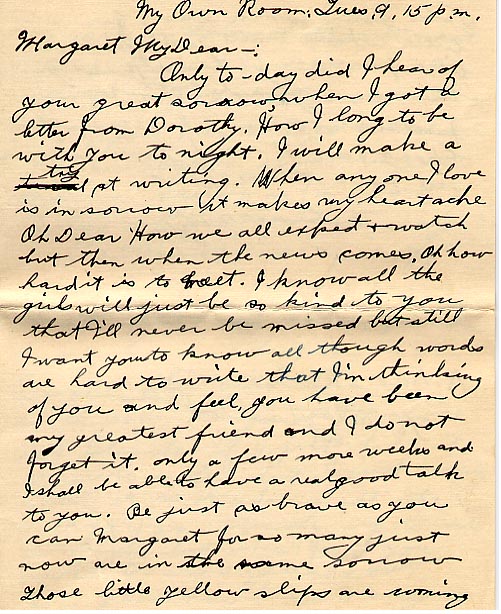 My Own Room. Tues, 9.15 p.m.
Margaret My Dear -:
Only to-day did I hear of
your great sorrow, when I got a
letter from Dorothy. How I long to be
with you to night. I will make a
try at writing. When any one I love
is in sorrow it makes my heart ache
Oh Dear How we all expect + watch
but then when the news comes, Oh how
hard it is to meet. I know all the
girls will just be so kind to you
that I'll never be missed but still
I want you to know all though words
are hard to write that I'm thinking
of you and feel, you have been
my greatest friend and I do not
forget it. only a few more weeks and
I shall be able to have a real good talk
to you. Be just as brave as you
can Margaret for so many just
now are in the same sorrow
those little yellow slips are coming